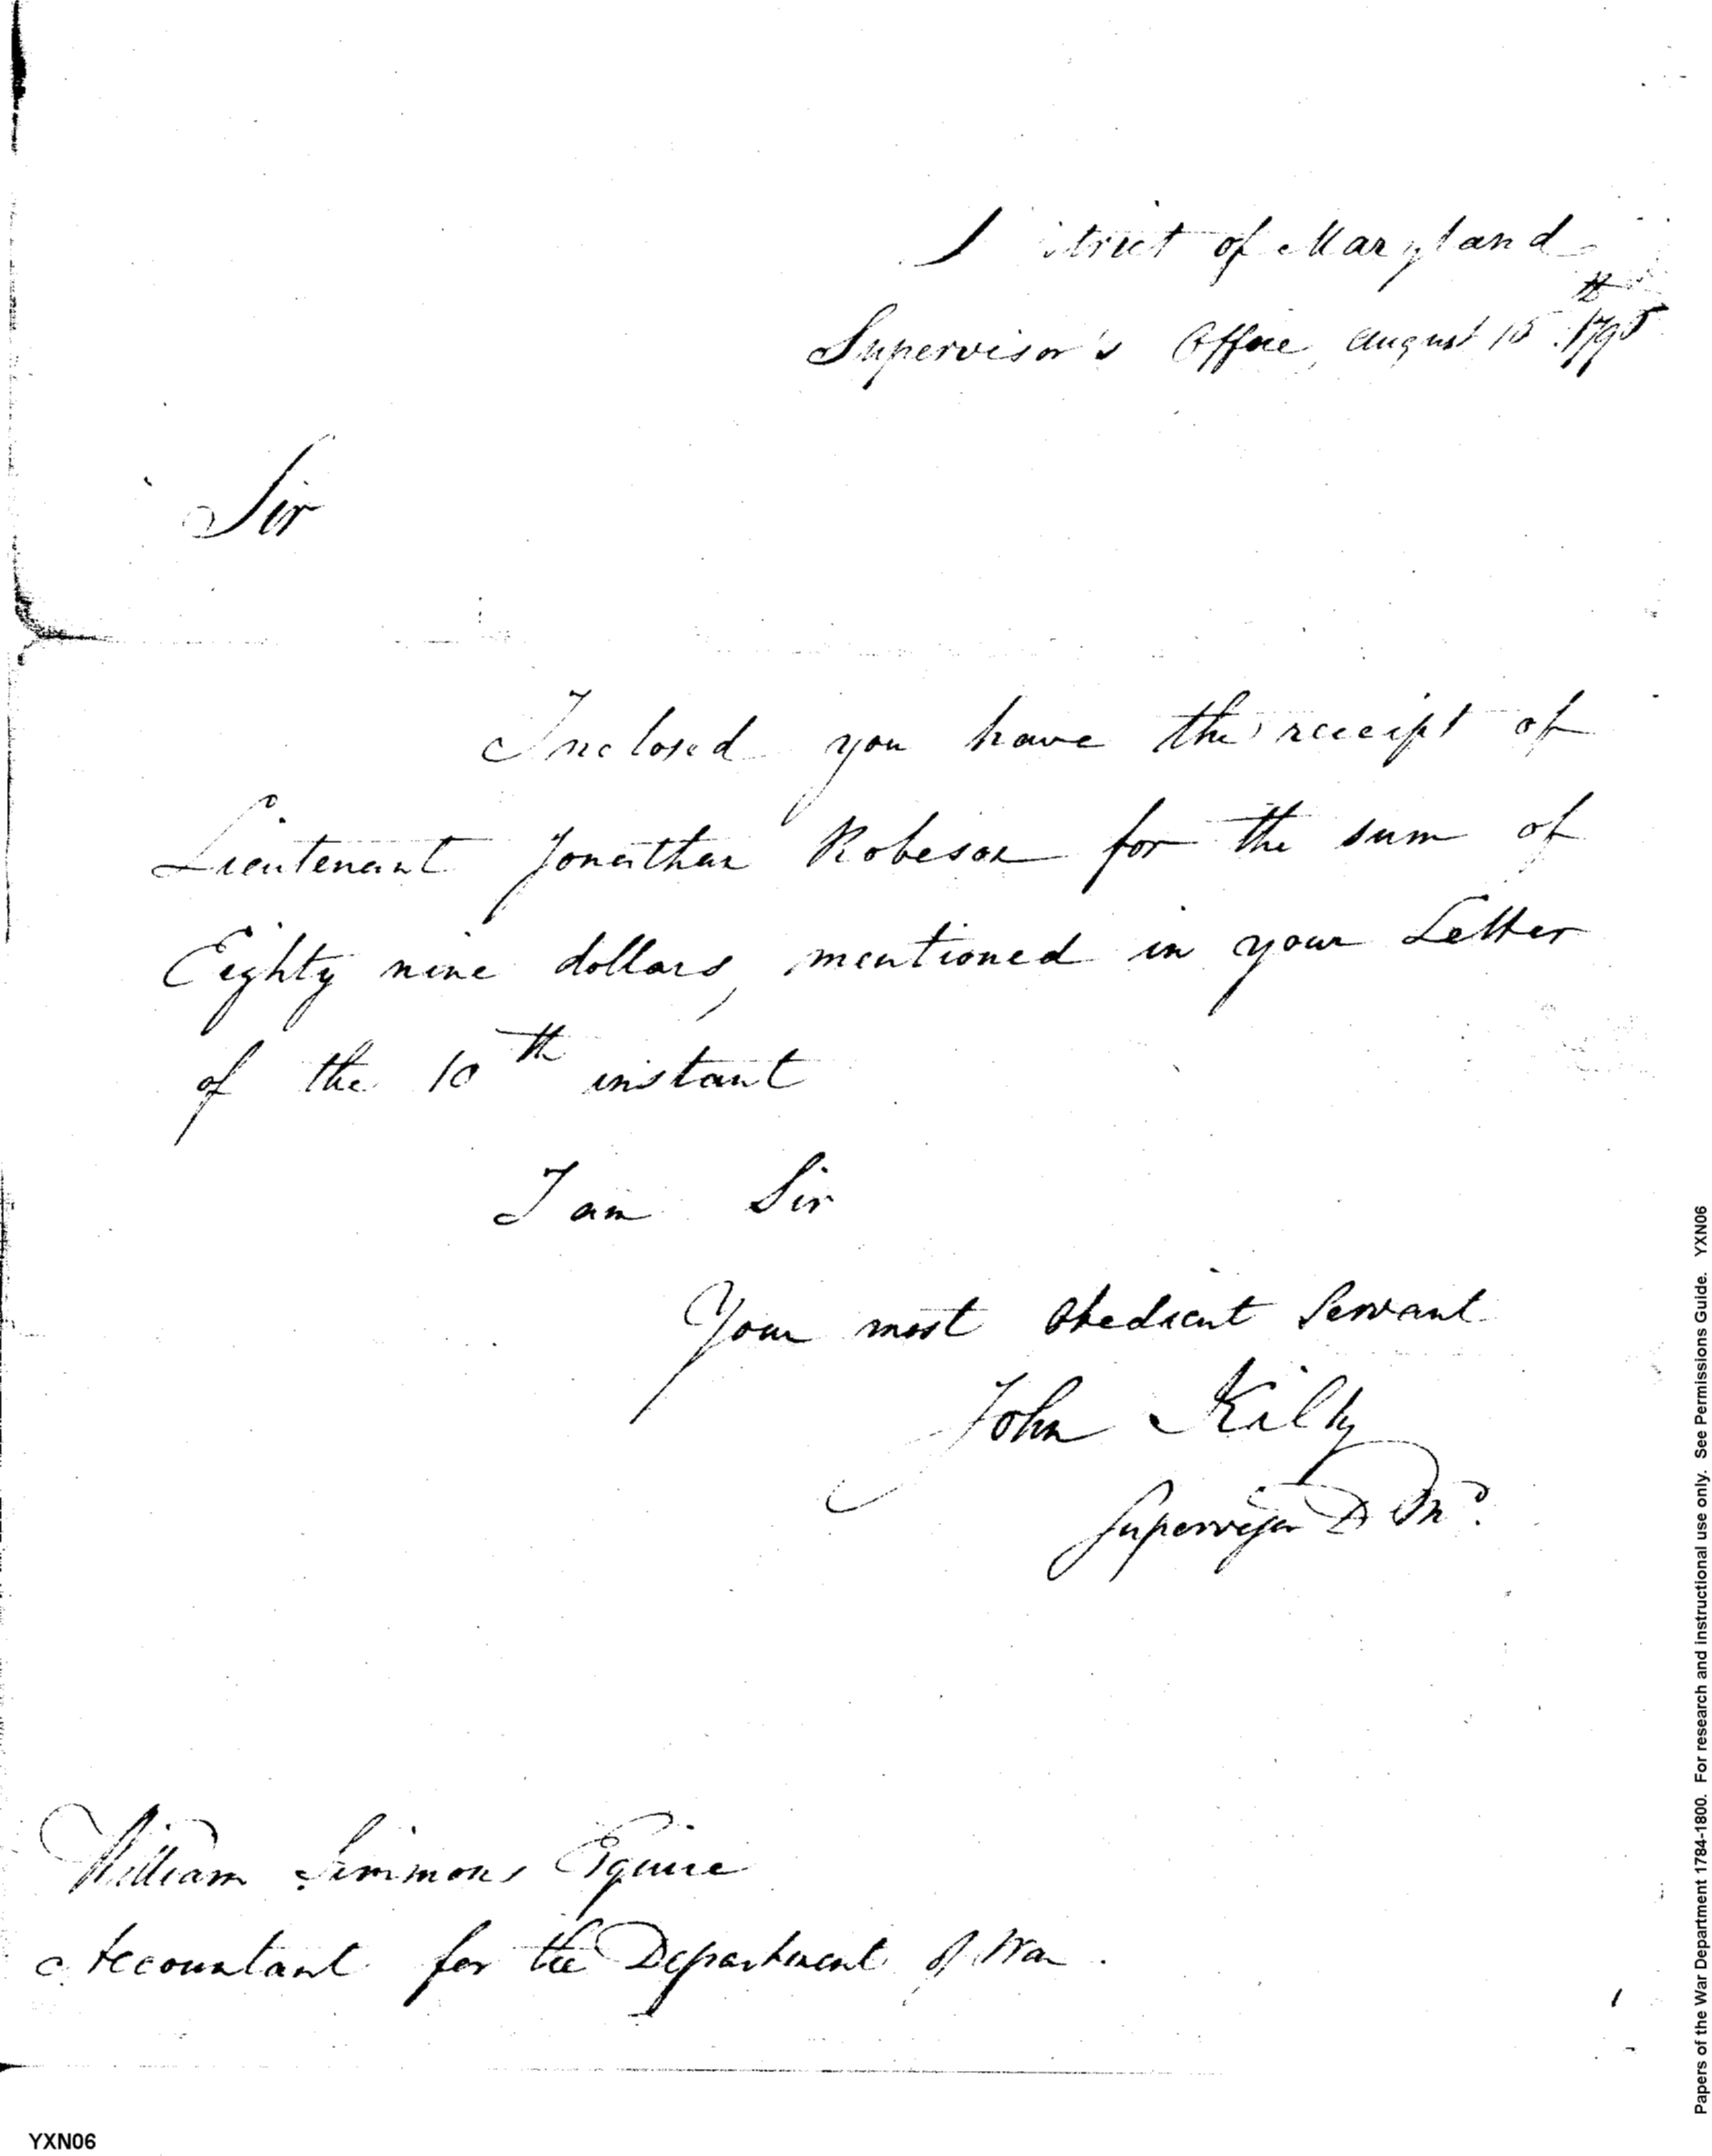 District of Maryland
Supervisor's Office, August 15th 1795
Sir
Inclosed you have the receipt of
Lieutenant Jonathan Robeson for the sum of
Eighty nine dollars, mentioned in your Letter
of the 10th instant
I am Sir
Your most Obedient Servant
John Kilty
Supervisor D Md.
William Simmons Esquire
Accountant for the Department of War.
YXN06
Papers of the War Department 1784-1800. For research and instructional use only. See Permissions Guide. YXN06